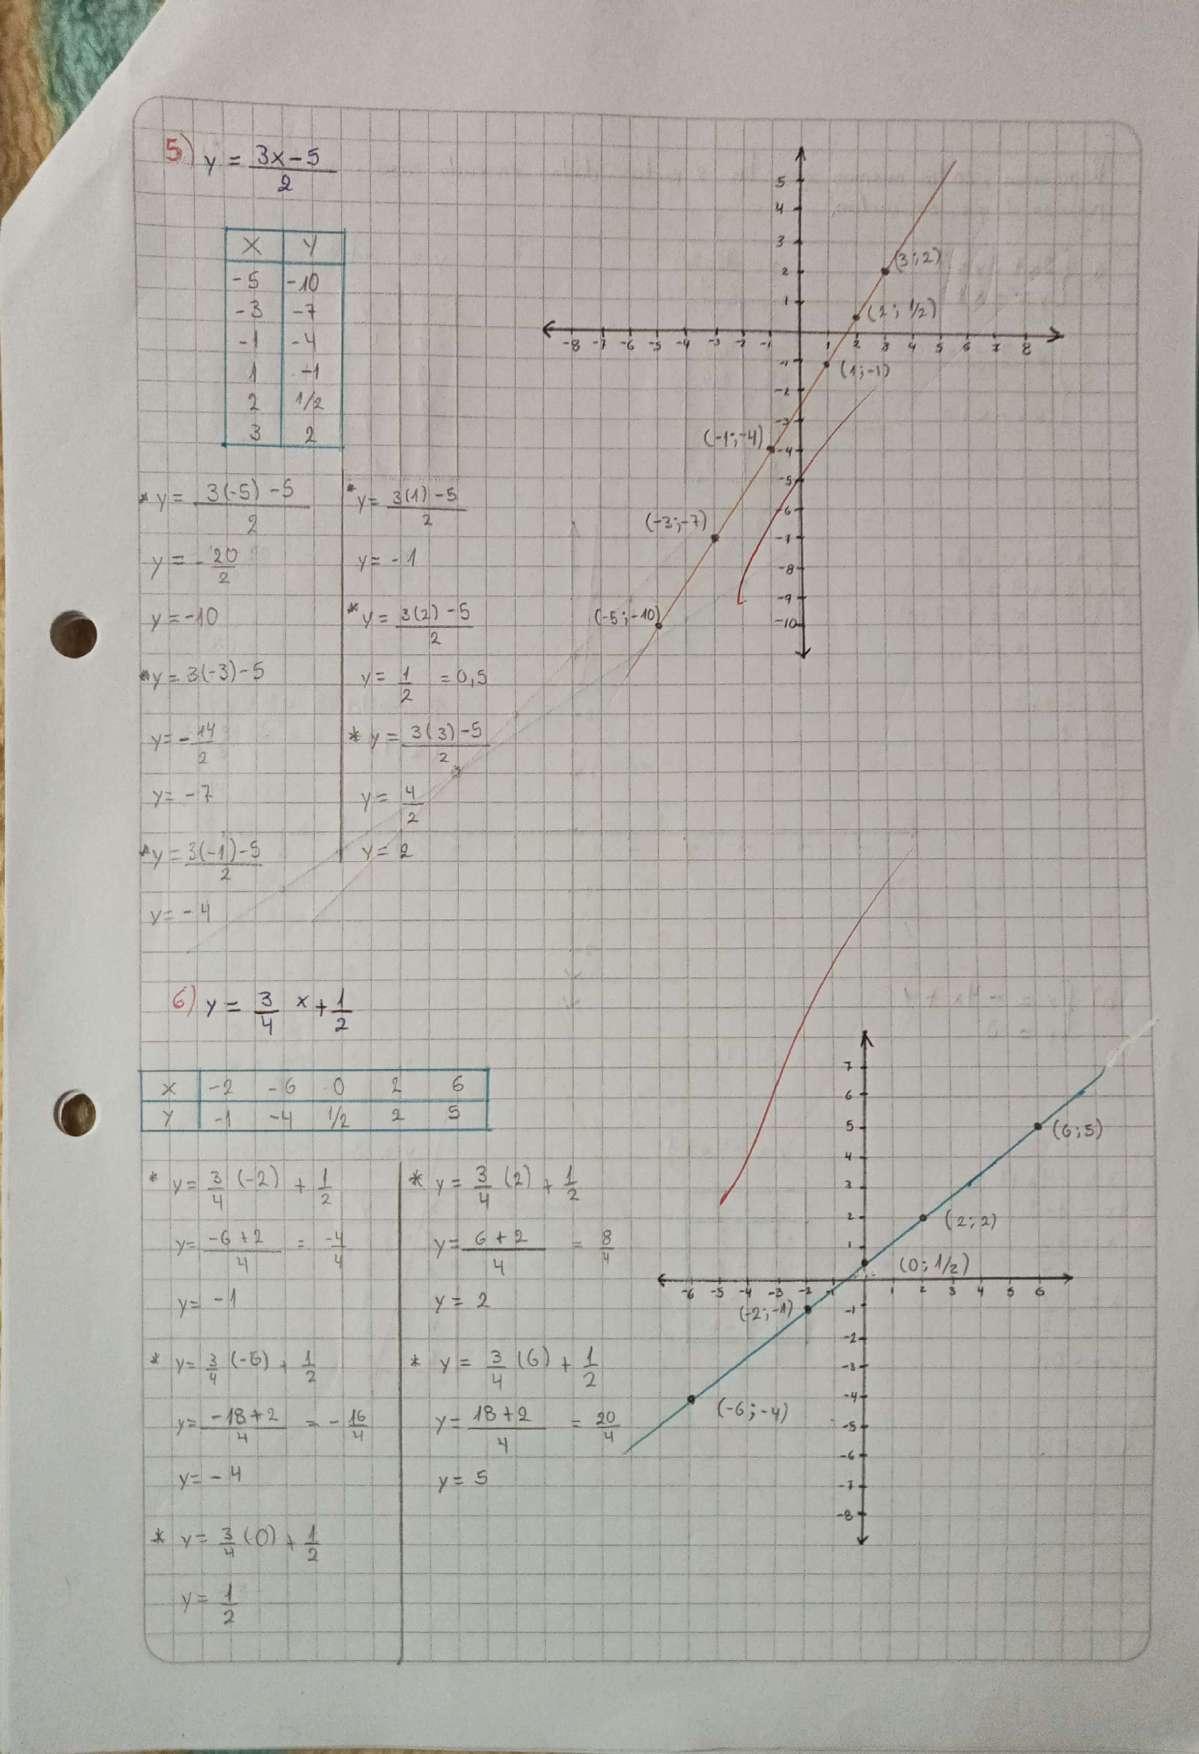 5) y = 3x-5/2
X Y
-5 -10
-3 -7
-1 -4
1 -1
2 1/2
3 2
* y = 3(-5)-5/2
y = -20/2
y = -10
* y = 3(-3)-5
y = -14/2
y = -7
* y = 3(-1)-5/2
y = -4
* y = 3(1)-5/2
y = -1
* y = 3(2)-5/2
y = 1/2 = 0,5
* y = 3(3)-5/2
y = 4/2
y = 2
5
4
3
2
1
-8 -7 -6 -5 -4 -3 -2 -1 1 2 3 4 5 6 7 8
-1
-2
-3
-4
-5
-6
-7
-8
-9
-10
(3;2)
(2; 1/2)
(1;-1)
(-1;-4)
(-3;-7)
(-5;-10)
6) y = 3/4 x + 1/2
X -2 -6 0 2 6
Y -1 -4 1/2 2 5
* y = 3/4 (-2) + 1/2
y = -6+2/4 = -4/4
y = -1
* y = 3/4 (-6) + 1/2
y = -18+2/4 = -16/4
y = -4
* y = 3/4 (0) + 1/2
y = 1/2
* y = 3/4 (2) + 1/2
y = 6+2/4 = 8/4
y = 2
* y = 3/4 (6) + 1/2
y = 18+2/4 = 20/4
y = 5
7
6
5
4
3
2
1
-6 -5 -4 -3 -2 -1 1 2 3 4 5 6
-1
-2
-3
-4
-5
-6
-7
-8
(6;5)
(2;2)
(0; 1/2)
(-2;-1)
(-6;-4)